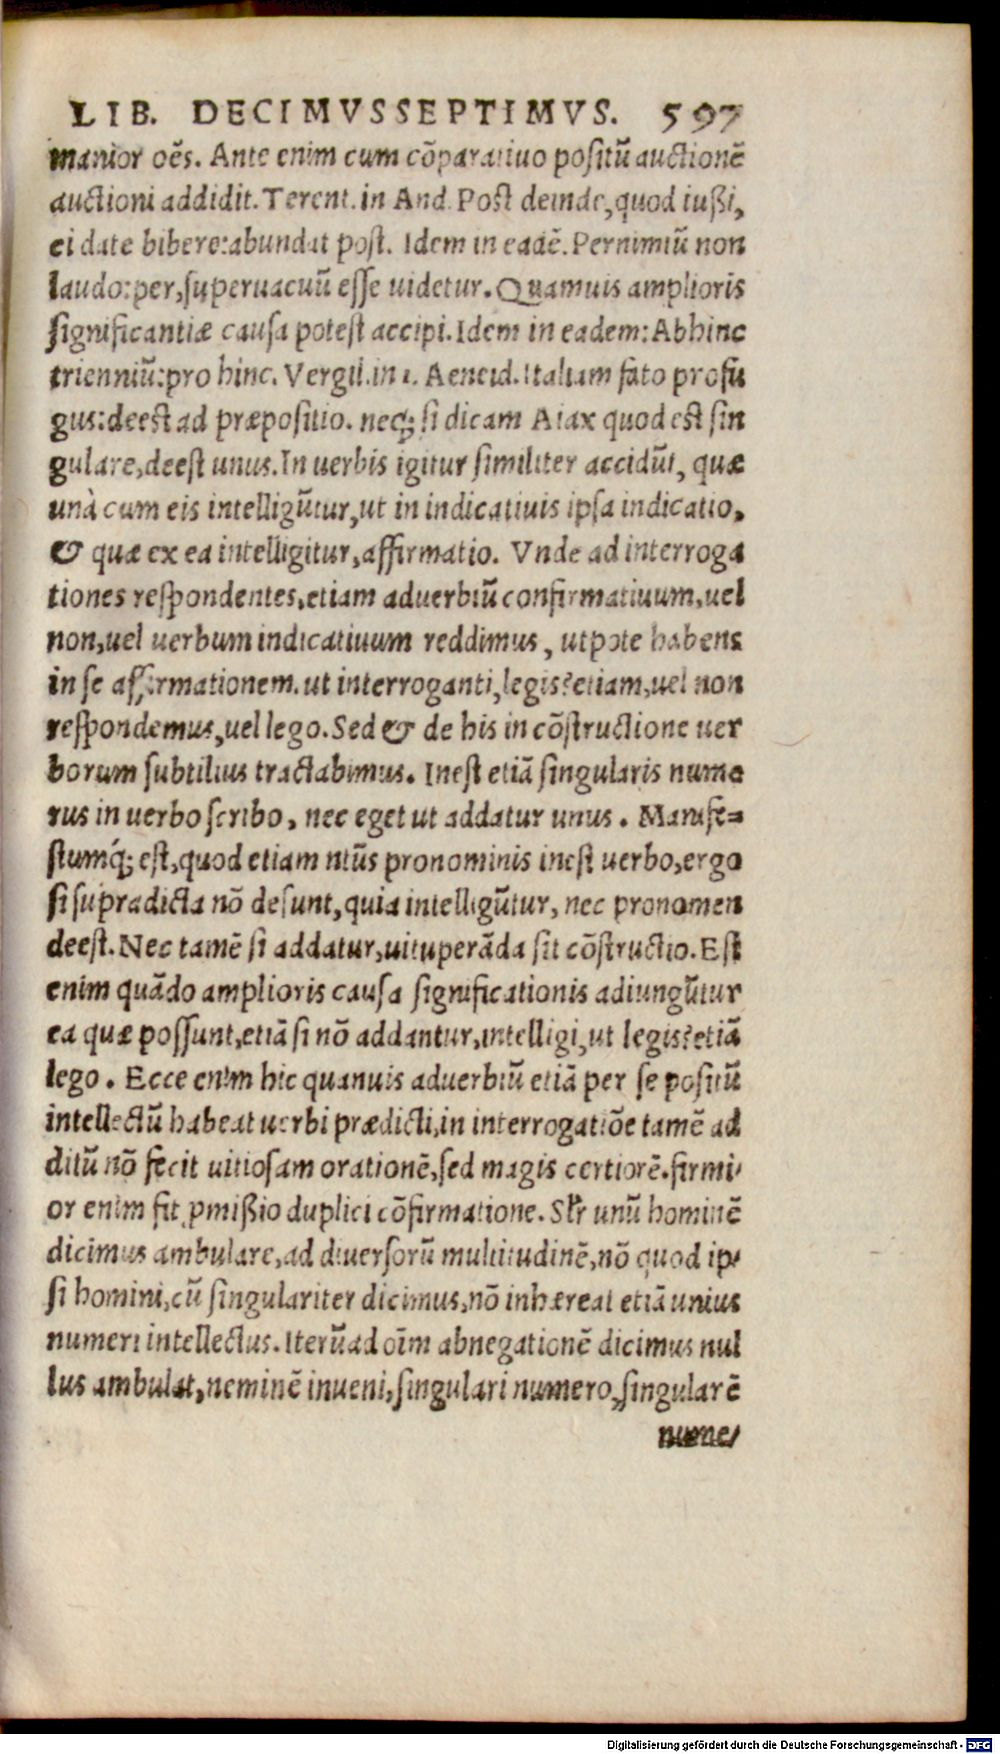 LIB. DECIMVSSEPTIMVS. 597
manior oẽs. Ante enim cum cõparatiuo positũ auctionẽ
auctioni addidit. Terent. in And. Post deinde, quod iußi,
ei date bibere: abundat post. Idem in eadẽ. Pernimiũ non
laudo: per, superuacuũ esse uidetur. Quamuis amplioris
significantiæ causa potest accipi. Idem in eadem: Abhinc
trienniũ: pro hinc. Vergil. in 1. Aeneid. Italiam fato profu
gus: deest ad præpositio. neq; si dicam Aiax quod est sin
gulare, deest unus. In uerbis igitur similiter accidũt, quæ
unà cum eis intelligũtur, ut in indicatiuis ipsa indicatio,
& quæ ex ea intelligitur, affirmatio. Vnde ad interroga
tiones respondentes, etiam aduerbiũ confirmatiuum, uel
non, uel uerbum indicatiuum reddimus, utpote habens
in se affirmationem. ut interroganti, legis? etiam, uel non
respondemus, uel lego. Sed & de his in cõstructione uer
borum subtilius tractabimus. Inest etiã singularis nume
rus in uerbo scribo, nec eget ut addatur unus. Manife=
stumq́; est, quod etiam ntũs pronominis inest uerbo, ergo
si supradicta nõ desunt, quia intelligũtur, nec pronomen
deest. Nec tamẽ si addatur, uituperãda sit cõstructio. Est
enim quãdo amplioris causa significationis adiungũtur
ea quæ possunt, etiã si nõ addantur, intelligi, ut legis? etiã
lego. Ecce enim hic quanuis aduerbiũ etiã per se positũ
intellectũ habeat uerbi prædicti, in interrogatiõe tamẽ ad
ditũ nõ fecit uitiosam orationẽ, sed magis certiorẽ. firmi-
or enim fit ꝓmißio duplici cõfirmatione. Sĩr unũ hominẽ
dicimus ambulare, ad diuersorũ multitudinẽ, nõ quod ip-
si homini, cũ singulariter dicimus, nõ inhæreat etiã unius
numeri intellectus. Iterũ ad oĩm abnegationẽ dicimus nul
lus ambulat, neminẽ inueni, singulari numero, singularẽ
nume-
Digitalisierung gefördert durch die Deutsche Forschungsgemeinschaft - DFG